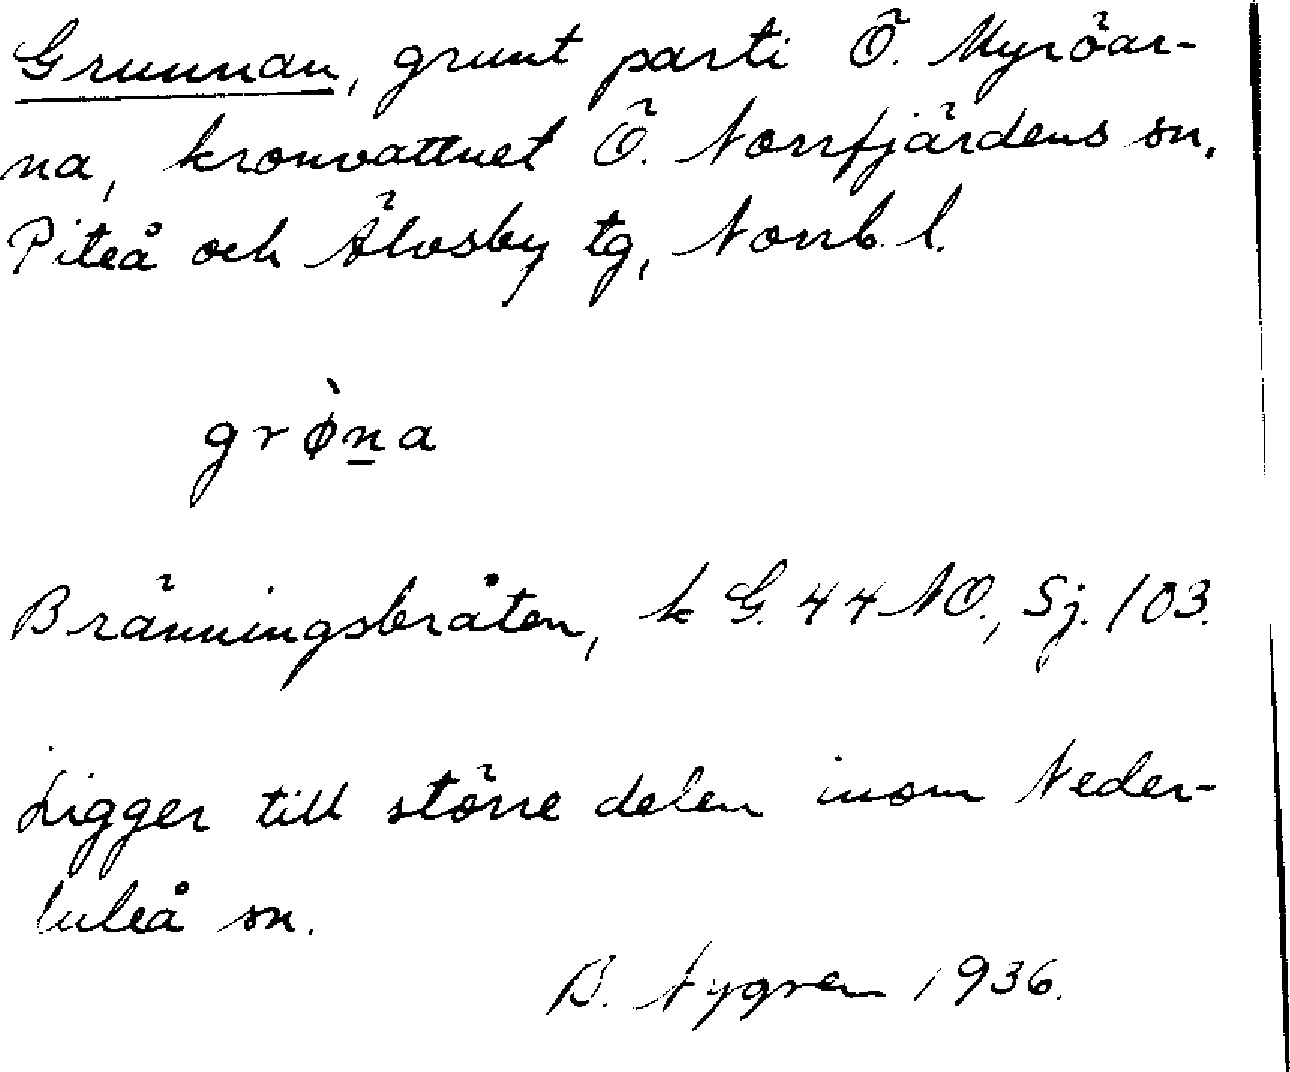 Grunnan, grunt parti Ö. Myröar-
na, kronvattnet Ö. Norrfjärdens sn,
Piteå och Älvsby tg, Norrb. l.
grø̀n̲a
Bränningsbråten, k G. 44 NO., Sj. 103.
Ligger till större delen inom Neder-
luleå sn.
B. Nygren 1936.